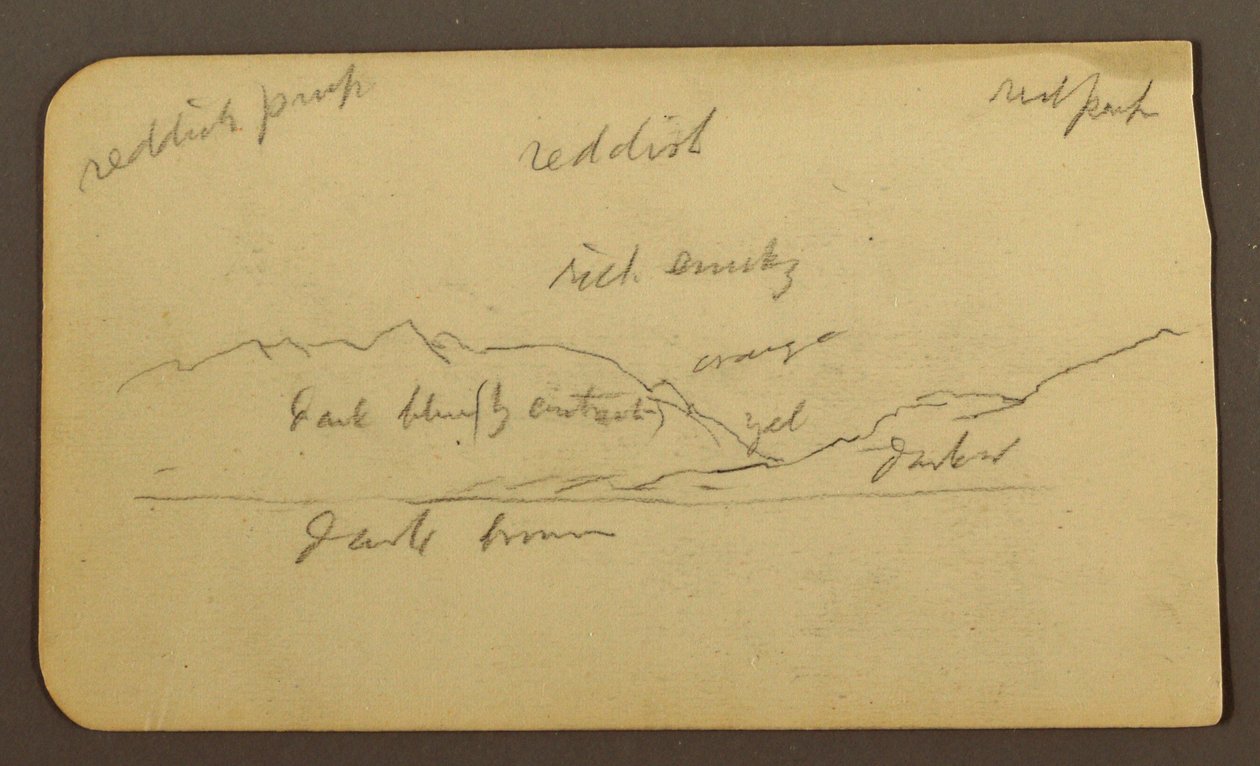 reddish purp
red purp
reddish
rich smoky
orange
Dark blue (by contrast)
yel
darker
Dark brown